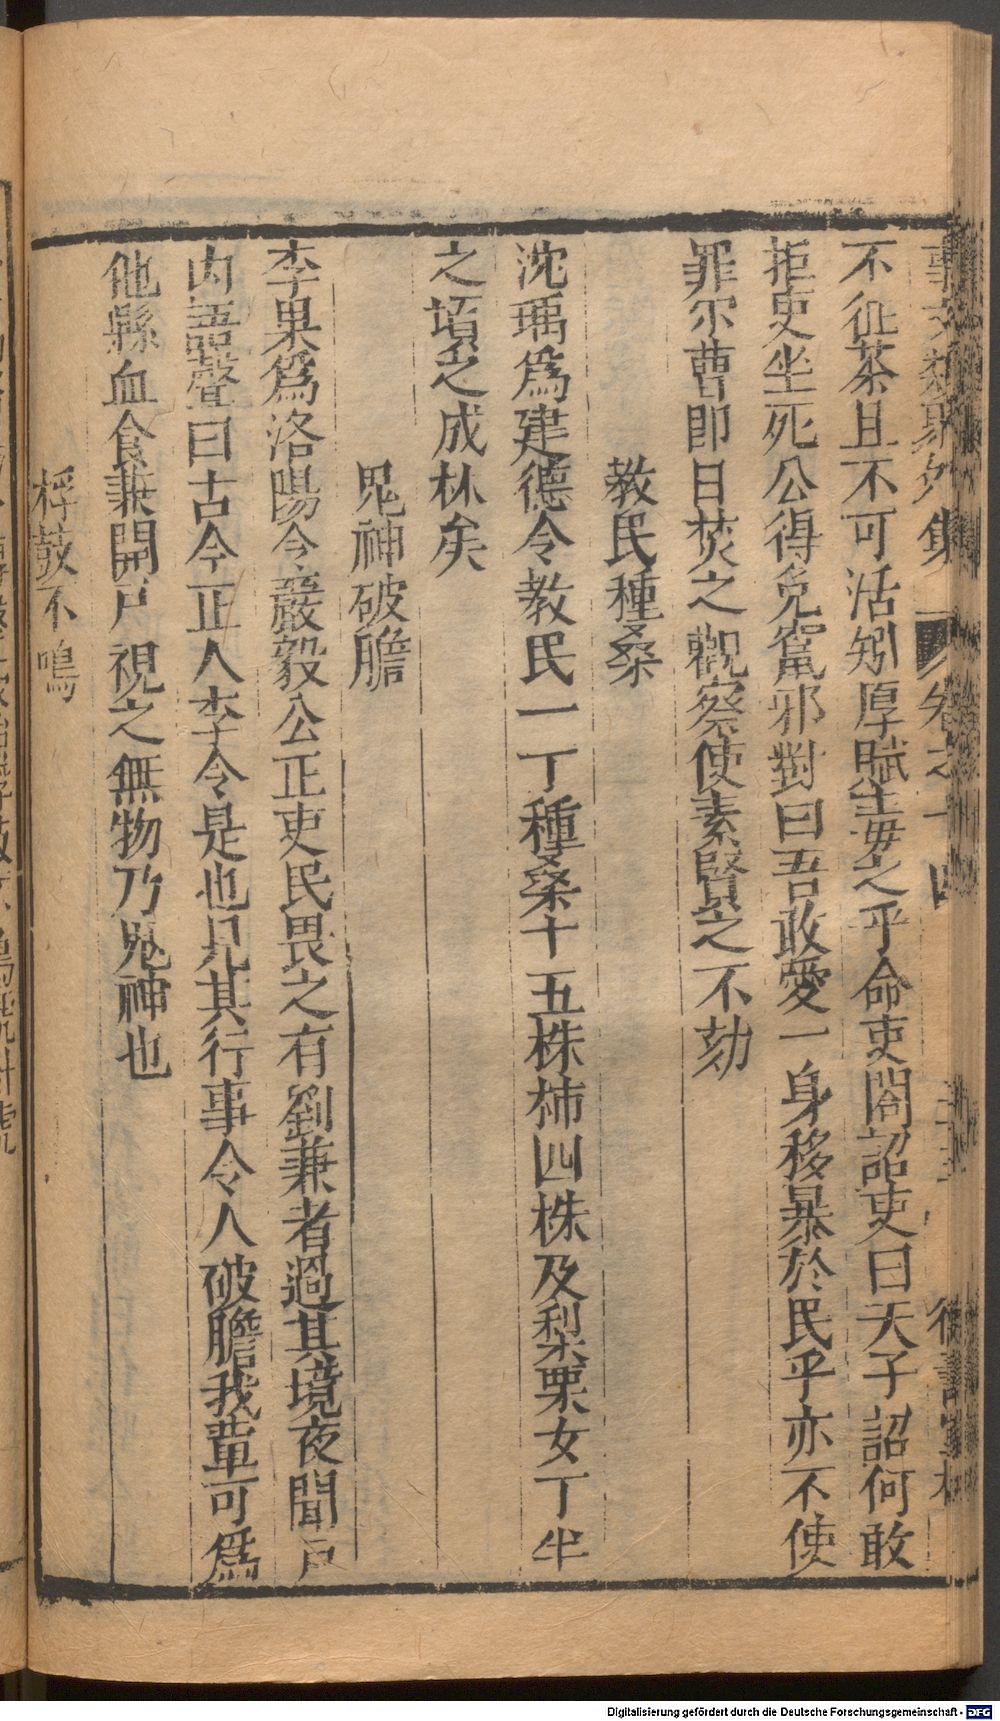 事文類聚外集 卷之十四
不征茶且不可活矧厚賦毒之乎命吏閣詔吏曰天子詔何敢
拒吏坐死公得免竄邪對曰吾敢愛一身移暴於民乎亦不使
罪尔曹即日焚之觀察使素賢之不劾
教民種桑
沈瑀為建德令教民一丁種桑十五株柿四株及梨栗女丁半
之頃之成林矣
鬼神破膽
李杲為洛陽令嚴毅公正吏民畏之有劉兼者過其境夜聞戶
内語聲曰古今正人李令是也見其行事令人破膽我輩可為
他縣血食兼開戶視之無物乃鬼神也
桴鼓不鳴
Digitalisierung gefördert durch die Deutsche Forschungsgemeinschaft - DFG